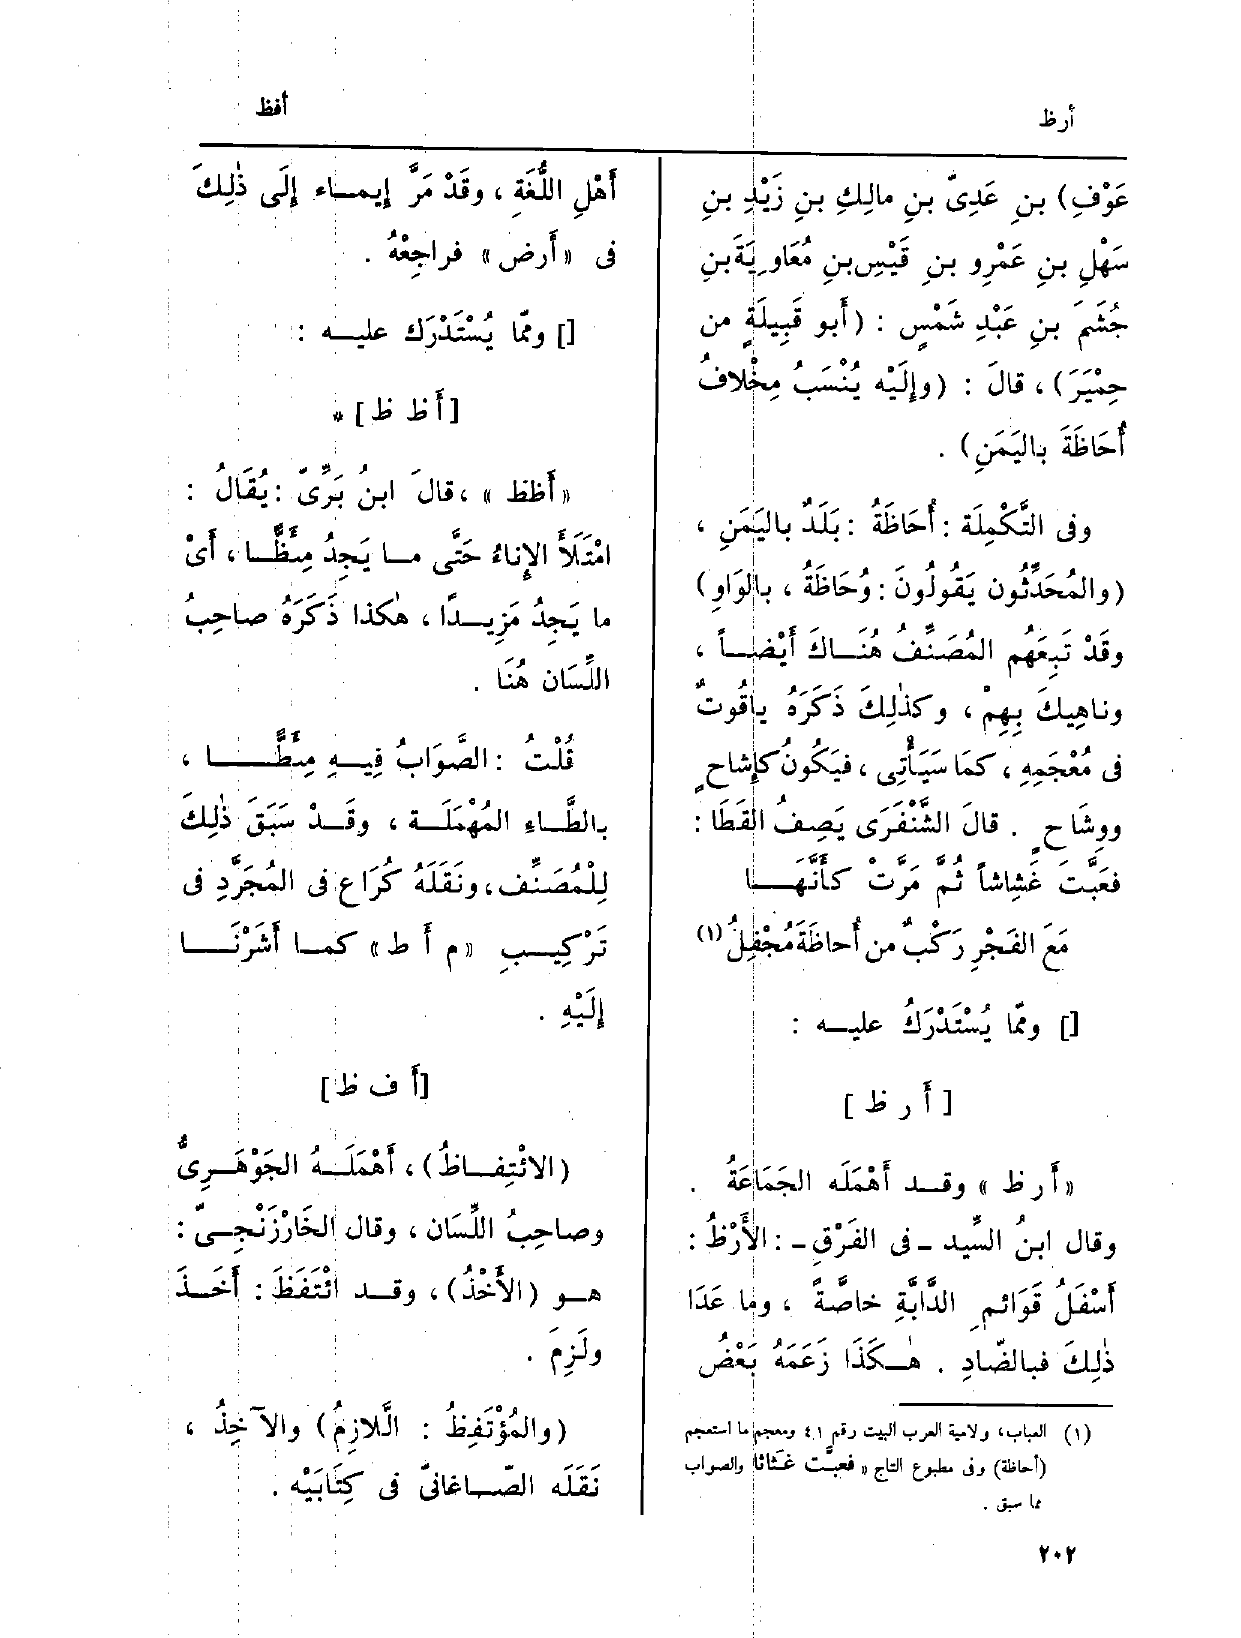 أرظ
أفظ
عَوْفِ) بنِ عَدِىِّ بنِ مالِكِ بنِ زَيْدِ بنِ
سَهْلِ بنِ عَمْرِو بنِ قَيْسِ بنِ مُعَاوِيَةَ بنِ
جُشَمَ بنِ عَبْدِ شَمْسٍ : (أَبو قَبِيلَةٍ من
حِمْيَرَ) ، قالَ : (وإِلَيْه يُنْسَبُ مِخْلافُ
أُحَاظَةَ بِاليَمَنِ) .
وفى التَّكْمِلَة : أُحَاظَةُ : بَلَدٌ باليَمَنِ ،
(والمُحَدِّثُون يَقُولُونَ : وُحَاظَةُ ، بالوَاوِ)
وقَدْ تَبِعَهُم المُصَنِّفُ هُنَاكَ أَيْضاً ،
وناهِيكَ بِهِمْ ، وكذٰلِكَ ذَكَرَهُ ياقُوتٌ
فى مُعْجَمِهِ ، كمَا سَيَأْتِى ، فيَكُونُ كإِشاحٍ
ووِشَاحٍ . قالَ الشَّنْفَرَى يَصِفُ القَطَا :
فعَبَّتْ غِشَاشاً ثُمَّ مَرَّتْ كأَنَّهَا
مَعَ الفَجْرِ رَكْبٌ من أُحاظَةَ مُجْفِلُ (١)
[] وممّا يُسْتَدْرَكُ عليه :
[ أَ ر ظ ]
«أَرظ» وقد أَهْمَلَه الجَمَاعَةُ .
وقال ابنُ السِّيد - فى الفَرْقِ - : الأَرْظُ :
أَسْفَلُ قَوَائمِ الدَّابَّةِ خاصَّةً ، وما عَدَا
ذٰلِكَ فبالضّادِ . هٰكَذَا زَعَمَهُ بَعْضُ
(١) العباب، ولامية العرب البيت رقم ٤١ ومعجم ما استعجم
(أحاظة) وفى مطبوع التاج «فعبَّت غثاثا والصواب
مما سبق .
أَهْلِ اللُّغَةِ ، وقَدْ مَرَّ إِيماء إِلَى ذٰلِكَ
فى «أَرض» فراجِعْهُ .
[] وممّا يُسْتَدْرَك عليه :
[أَ ظ ظ] *
«أَظظ» ، قالَ ابنُ بَرِّىّ : يُقَالُ :
امْتَلَأَ الإِناءُ حَتَّى ما يَجِدُ مِئَظًّا ، أَىْ
ما يَجِدُ مَزِيدًا ، هٰكذا ذَكَرَهُ صاحِبُ
اللِّسَان هُنَا .
قُلْتُ : الصَّوَابُ فِيهِ مِئَطًّا ،
بالطَّاءِ المُهْمَلَة ، وقَدْ سَبَقَ ذٰلِكَ
لِلْمُصَنِّف ، ونَقَلَهُ كُرَاع فى المُجَرَّدِ فى
تَرْكِيبِ «م أَ ط» كما أَشَرْنَا
إِلَيْهِ .
[أَ ف ظ]
(الائْتِفاظُ) ، أَهْمَلَهُ الجَوْهَرِىُّ
وصاحِبُ اللِّسَان ، وقال الخَارْزَنْجِىّ :
هو (الأَخْذُ) ، وقد ائْتَفَظَ : أَخَذَ
ولَزِمَ .
(والمُؤْتَفِظُ : اللَّازِمُ) والآخِذُ ،
نَقَلَه الصّاغانىّ فى كِتَابَيْه .
٢٠٢